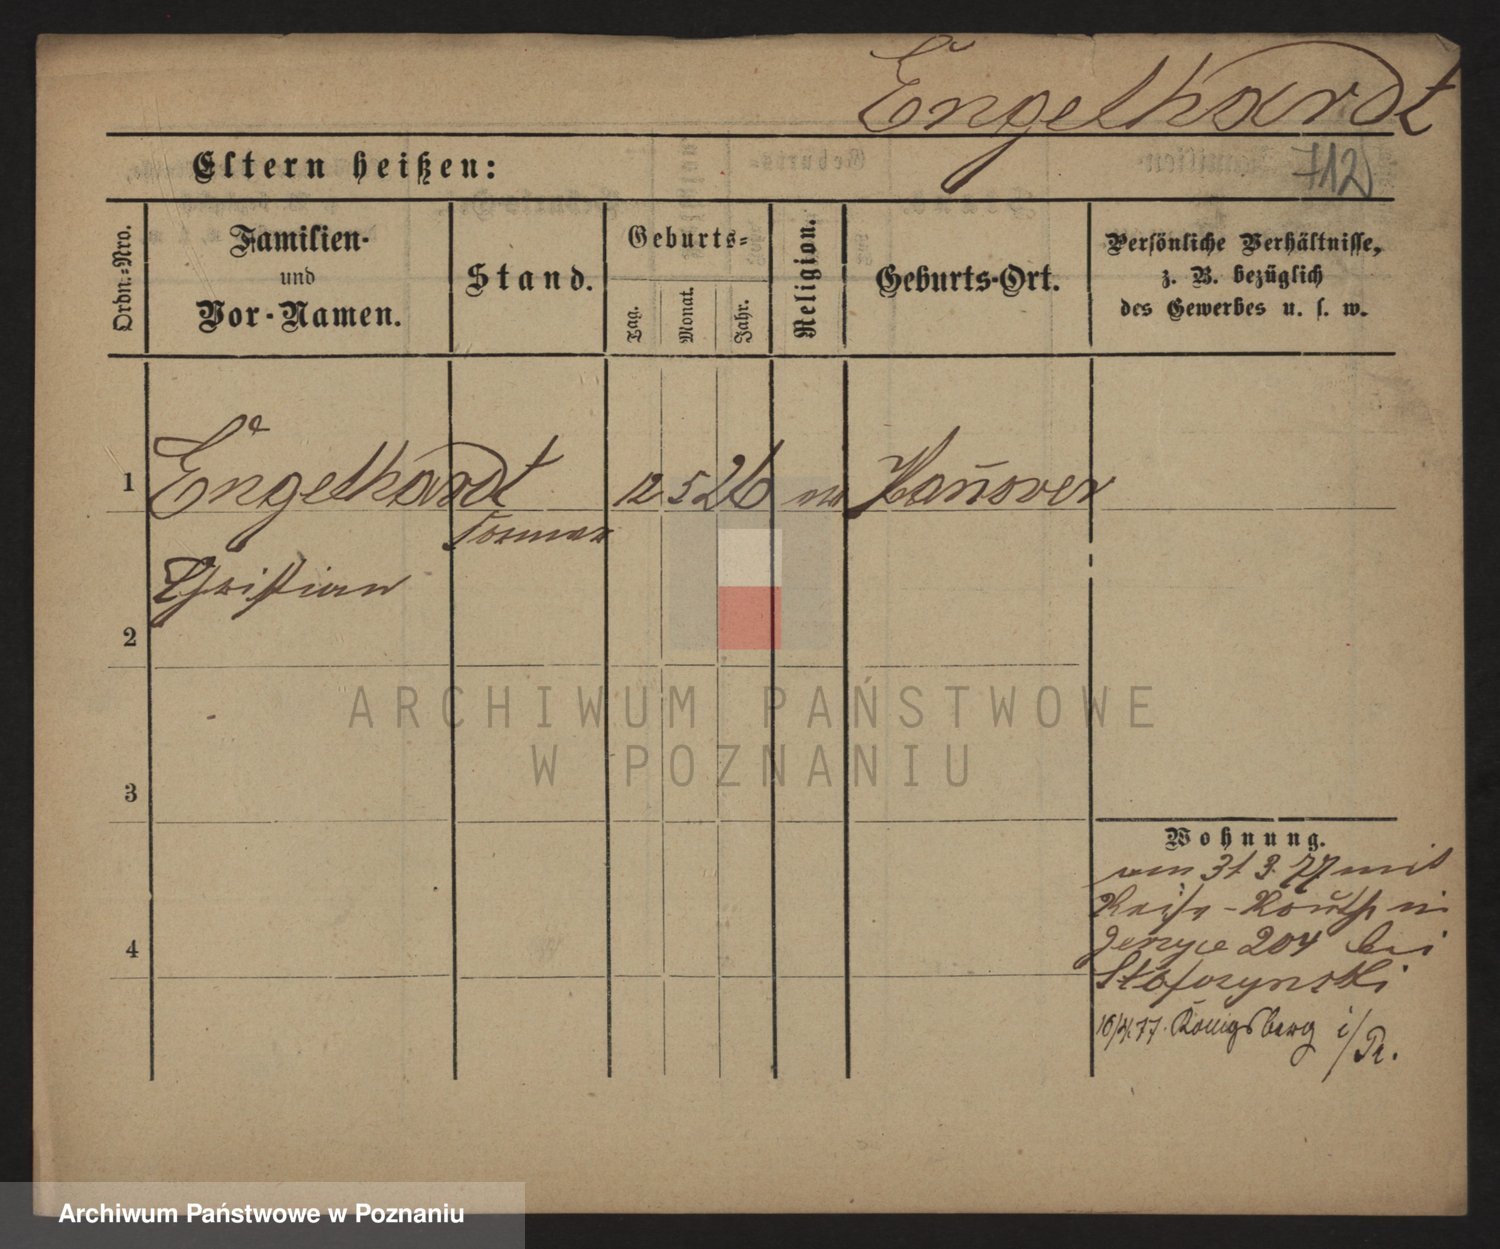 Engelhardt
712
Eltern heißen:
Ordn.-Nro.
Familien-
und
Vor-Namen.
Stand.
Geburts-
Tag.
Monat.
Jahr.
Religion.
Geburts-Ort.
Persönliche Verhältnisse,
z. B. bezüglich
des Gewerbes u. s. w.
1
Engelhardt 12 5 26 Hañover
Former
Christian
2
ARCHIWUM PAŃSTWOWE
W POZNANIU
3
Wohnung.
31 3. 77 mit
Jerzyce 204 bei
4
10/4.77. Königsberg i/Pr.
Archiwum Państwowe w Poznaniu